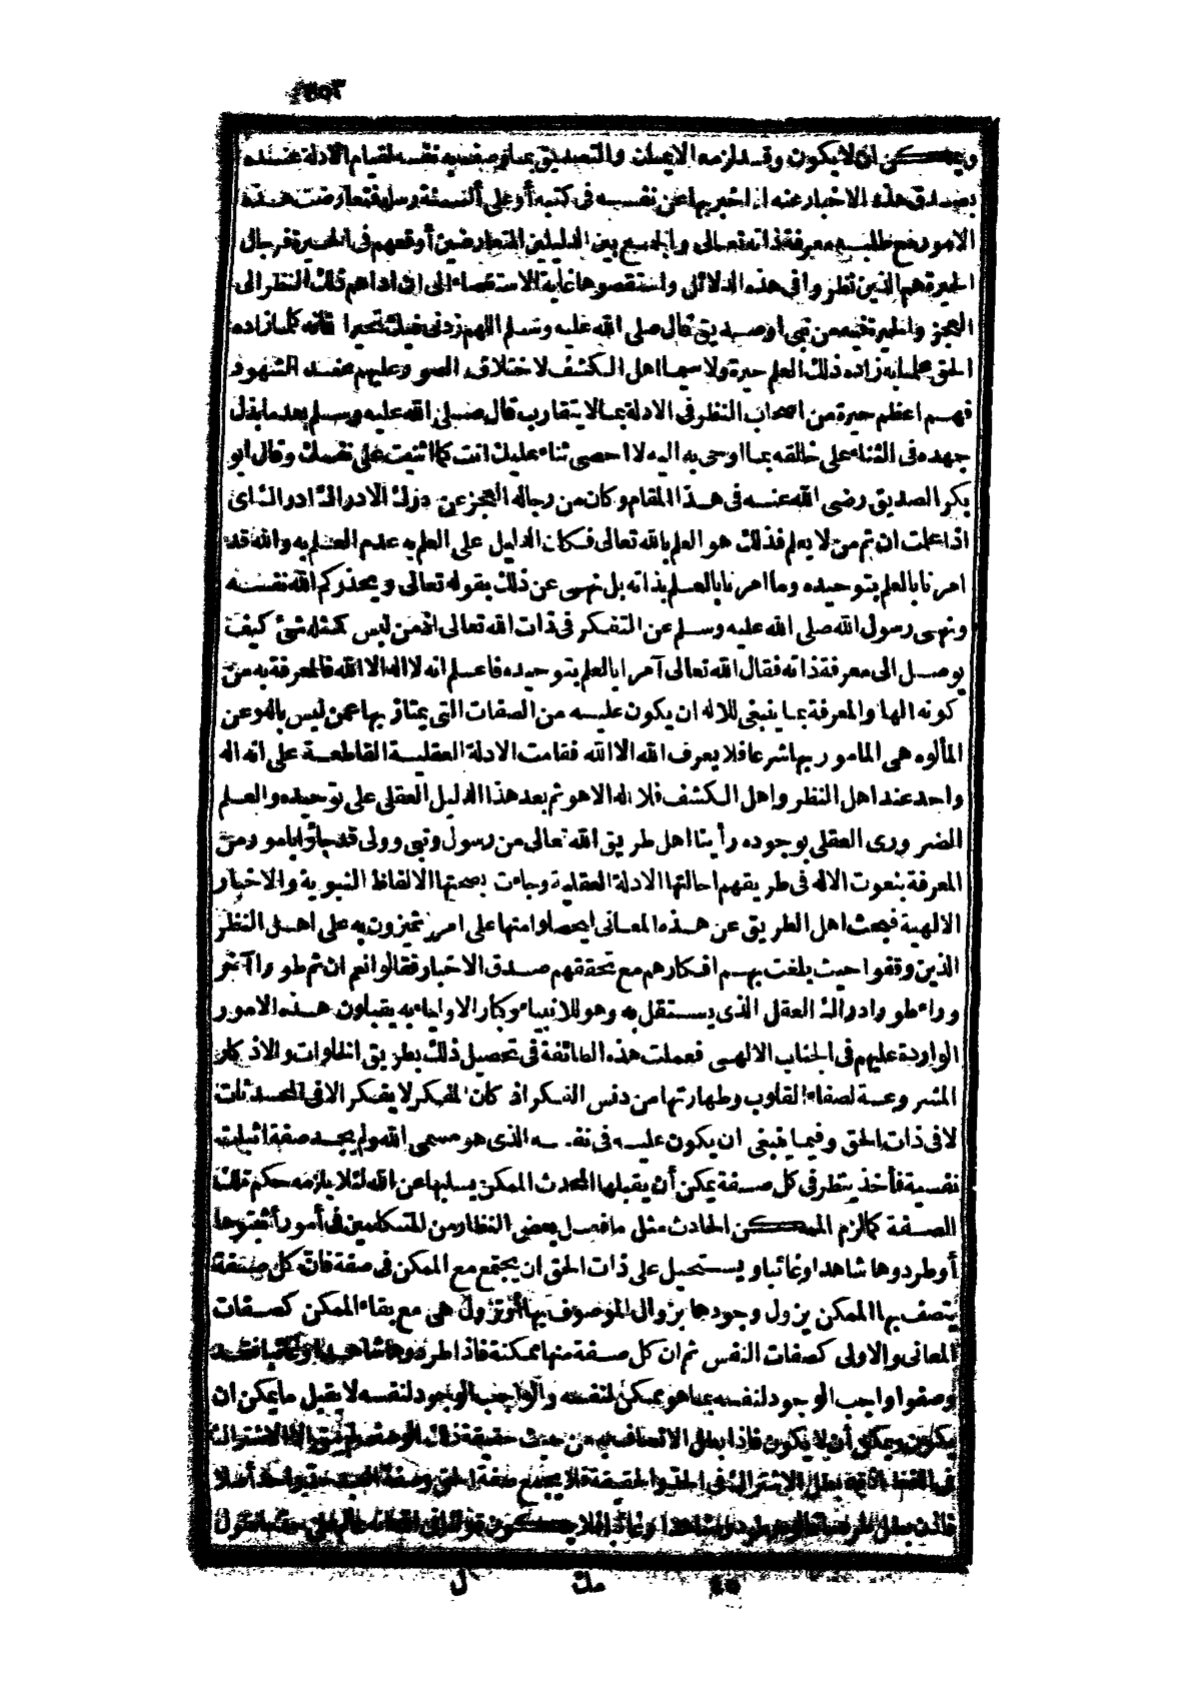 ٣٥٣
ويمكن ان لا يكون وقد لزمه الايمان والتصديق بما وصف به نفسه لقيام الادلة عنده
بصدق هذه الاخبار عنه اذا اخبر بها عن نفسه فى كتبه أو على ألسنة رسله فتعارضت هذه
الامور مع طلبه معرفة ذاته تعالى والجمع بين الدليلين المتعارضين أوقعهم فى الحيرة فرجال
الحيرة هم الذين نظروا فى هذه الدلائل واستقصوها غاية الاستقصاء الى ان اداهم ذلك النظر الى
العجز والحيرة فيه من نبى او صديق قال صلى الله عليه وسلم اللهم زدنى فيك تحيرا فانه كلما زاده
الحق علما به زاده ذلك العلم حيرة ولا سيما اهل الكشف لاختلاف الصور عليهم عند الشهود
فهم اعظم حيرة من اصحاب النظر فى الادلة بما لا يتقارب قال صلى الله عليه وسلم بعد ما بذل
جهده فى الثناء على خالقه بما اوحى به اليه لا احصى ثناء عليك انت كما اثنيت على نفسك وقال ابو
بكر الصديق رضى الله عنه فى هذا المقام وكان من رجاله العجز عن درك الادراك ادراك اى
اذا علمت ان ثم من لا يعلم فذلك هو العلم بالله تعالى فكان الدليل على العلم به عدم العلم به والله قد
امرنا بالعلم بتوحيده وما امرنا بالعلم بذاته بل نهى عن ذلك بقوله تعالى ويحذركم الله نفسه
ونهى رسول الله صلى الله عليه وسلم عن التفكر فى ذات الله تعالى اذ من ليس كمثله شئ كيف
يوصل الى معرفة ذاته فقال الله تعالى آمرا بالعلم بتوحيده فاعلم انه لا اله الا الله فالمعرفة به من
كونه الها والمعرفة بما ينبغى للاله ان يكون عليه من الصفات التى يمتاز بها عمن ليس باله وعن
المألوه هى المامور بها شرعا فلا يعرف الله الا الله فقامت الادلة العقلية القاطعة على انه اله
واحد عند اهل النظر واهل الكشف فلا اله الا هو ثم بعد هذا الدليل العقلى على توحيده والعلم
الضرورى العقلى بوجوده رأينا اهل طريق الله تعالى من رسول ونبى وولى قد جاؤا بامور من
المعرفة بنعوت الاله فى طريقهم احالتها الادلة العقلية وجاءت بصحتها الالفاظ النبوية والاخبار
الالهية فبحث اهل الطريق عن هذه المعانى ليحصلوا منها على امر يتميزون به على اهل النظر
الذين وقفوا حيث بلغت بهم افكارهم مع تحققهم صدق الاخبار فقالوا نعم ان ثم طورا آخر
وراء طور ادراك العقل الذى يستقل به وهو للانبياء وكبار الاولياء به يقبلون هذه الامور
الواردة عليهم فى الجناب الالهى فعملت هذه الطائفة فى تحصيل ذلك بطريق الخلوات والاذكار
المشروعة لصفاء القلوب وطهارتها من دنس الفكر اذ كان المفكر لا يفكر الا فى المحدثات
لا فى ذات الحق وفيما ينبغى ان يكون عليه فى نفسه الذى هو مسمى الله ولم يجد صفة اثبات
نفسية فأخذ ينظر فى كل صفة يمكن أن يقبلها المحدث الممكن يسلبها عن الله لئلا يلزمه حكم تلك
الصفة كما لزم الممكن الحادث مثل ما فعل بعض النظار من المتكلمين فى أمور أثبتوها
أو طردوها شاهدا وغائبا ويستحيل على ذات الحق ان يجتمع مع الممكن فى صفة فان كل صفة
يتصف بها الممكن يزول وجودها بزوال الموصوف بها أو تزول هى مع بقاء الممكن كصفات
المعانى والاولى كصفات النفس ثم ان كل صفة منها ممكنة فاذا طردوها شاهدا وغائبا فقد
وصفوا واجب الوجود لنفسه بما هو ممكن لنفسه والواجب الوجود لنفسه لا يقبل ما يمكن ان
يكون ويمكن أن لا يكون فاذا بطل الاتصاف به من حيث حقيقة ذلك الوصف لم يبق الا الاشتراك
فى اللفظ اذ قد بطل الاشتراك فى الحد والحقيقة فلا يجمع صفة الحق وصفة العبد حد واحد أصلا
فاذن بطل طرد شاهدا وغائبا فلا يكون قولنا فى الله انه عالم على حد ما نقول
٤٥ مك ل